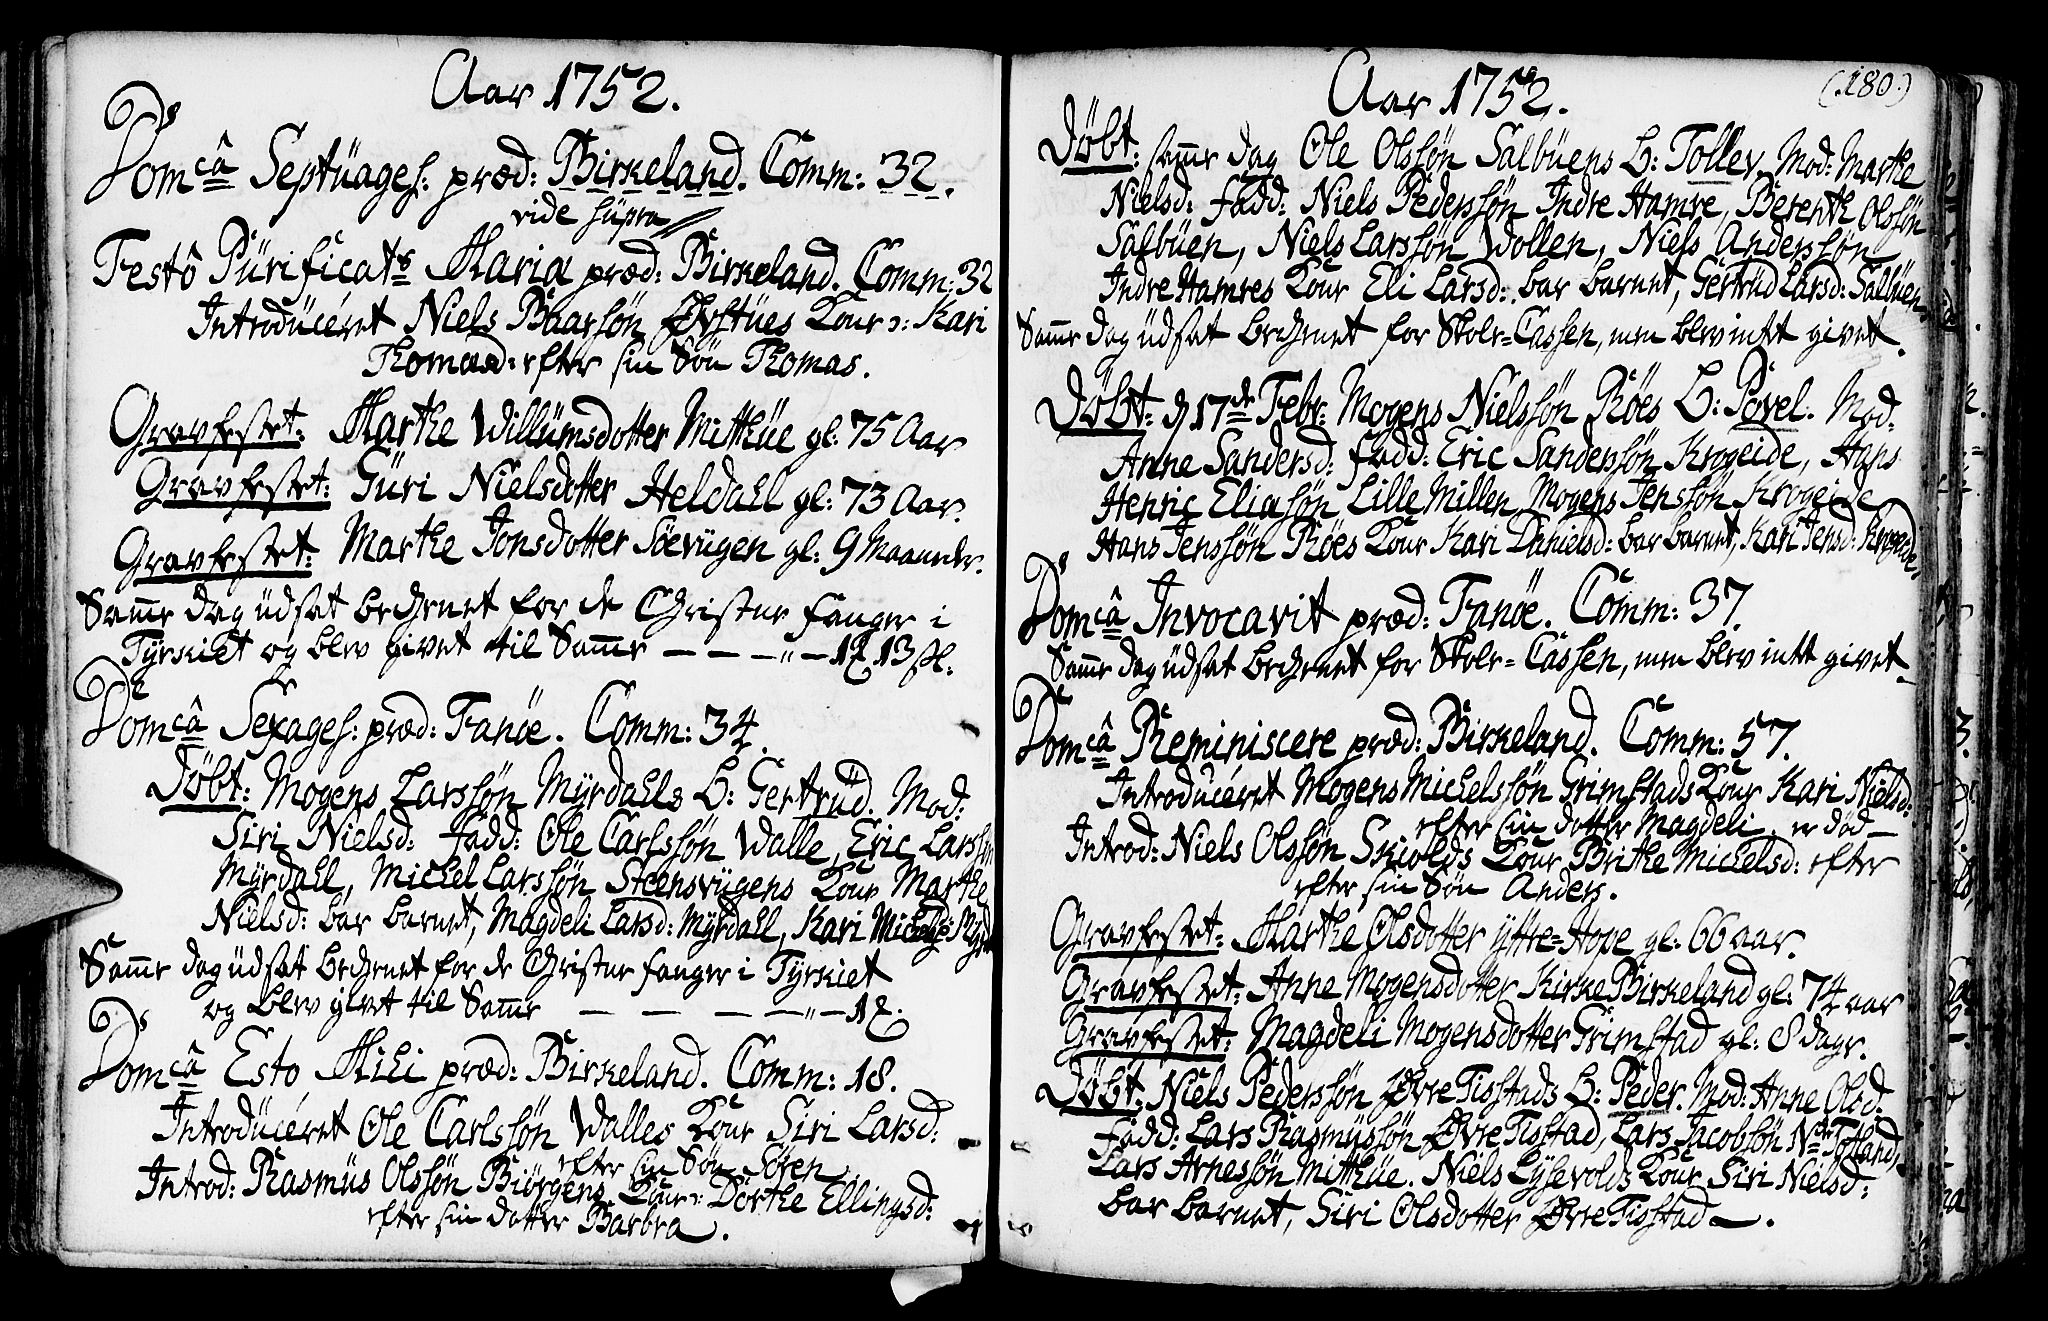 Aar 1752.
Domcâ Septüages: præd: Birkeland. Comm: 32.
vide süpra
Festô Pürificats Mariæ præd: Birkeland. Comm: 32
Introdüceret Niels Baarsøn Øvstües Kone: Kari
Thomæd: efter sin Søn Thomas.
Gravfestet: Marthe Willümsdotter Mitthüe gl: 75 Aar
Gravfestet: Güri Nielsdotter Heldahl gl: 73 Aar.
Gravfestet: Marthe Jonsdotter Söevügen gl: 9 Maaneder.
Samme dag üdsat bechenet for de Christne fanger i
Tyrkiet og blev givet til Samme — — — „ — 1 13 sk.
Domcâ Sexages: præd: Fanöe. Comm: 34.
Döbt: Mogens Larssøn Myrdahls B: Gertrüd. Mod:
Siri Nielsd: fadd: Ole Carlssøn Walle, Eric Larssøn
Myrdahl, Michel Larssøn Steensvügens Kone Marthe
Nielsd: bar barnet, Magdeli Larsd: Myrdahl, Kari
Samme dag üdsat bechenet for de Christne fanger i Tyrkiet
og blev givet til Samme — — — — „ — 1
Domcâ Esto Mihi præd: Birkeland. Comm: 18.
Introdüceret Ole Carlssøn Walles Kone Siri Larsd:
efter sin Søn Sören
Introd: Rasmüs Olssøn Biörgens Kone: Dorthe Ellingsd:
efter sin dotter Barbra.
Aar 1752.
(180.)
Döbt: samme dag Ole Olssøn Salbüens B: Tollev. Mod: Marthe
Nielsd: fadd: Niels Pederssøn Indre Hamre, Berenth Olssøn
Salbüen, Niels Larssøn Wollen, Niels Anderssøn
Indre Hamres Kone Eli Larsd: bar barnet, Gertrüd Larsd: Salbüen.
Samme dag üdsat bechenet for Skole=Cassen, men blev intt givet.
Döbt: d 17de Febr: Mogens Nielssøn Röes B: Povel. Mod:
Anne Sandersd: fadd: Eric Sanderssøn Krogeide, Hans
Henric Eliasøn Lille Millen, Mogens Jenssøn Krogeide
Hans Jenssøn Röes Kone Kari Danielsd: bar barnet, Kari Jensd: Krogeide.
Domcâ Invocavit præd: Fanöe. Comm: 37.
Samme dag üdsat bechenet for Skole=Cassen, men blev intt givet.
Domcâ Reminiscere præd: Birkeland. Comm: 57.
Introdüceret Mogens Michelssøn Grimstads Kone Kari Nielsd:
efter sin dotter Magdeli, er död—
Introd: Niels Olssøn Skiolds Kone Brithe Michelsd: efter
efter sin Søn Anders.
Gravfestet: Marthe Olsdotter yttre=Hope gl: 66 aar.
Gravfestet: Anne Mogensdotter Kirke Birkeland gl: 74 aar
Gravfestet: Magdeli Mogensdotter Grimstad gl: 8 dage.
Döbt: Niels Pederssøn Øvre Tisstads B: Peder. Mod: Anne Olsd:
fadd: Lars Rasmüssøn Øvre Tisstad, Lars Jacobsøn Totland,
Lars Arnessøn Mitthüe. Niels Lysevolds Kone Siri Nielsd:
bar barnet, Siri Olsdotter Øvre Tisstad —.